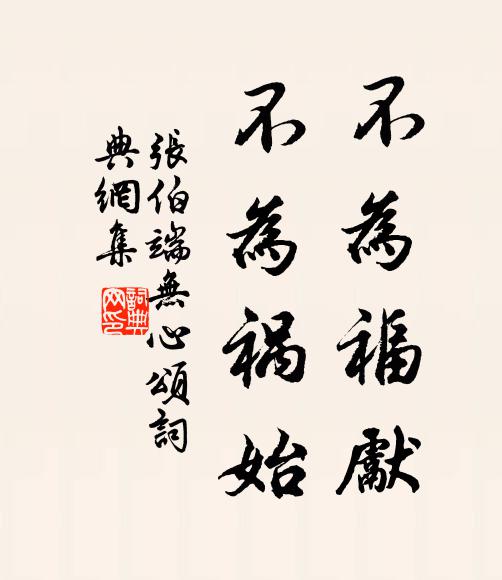 不為福獻
不為禍始
張伯端無心頌詞
典網集
詞典
网印